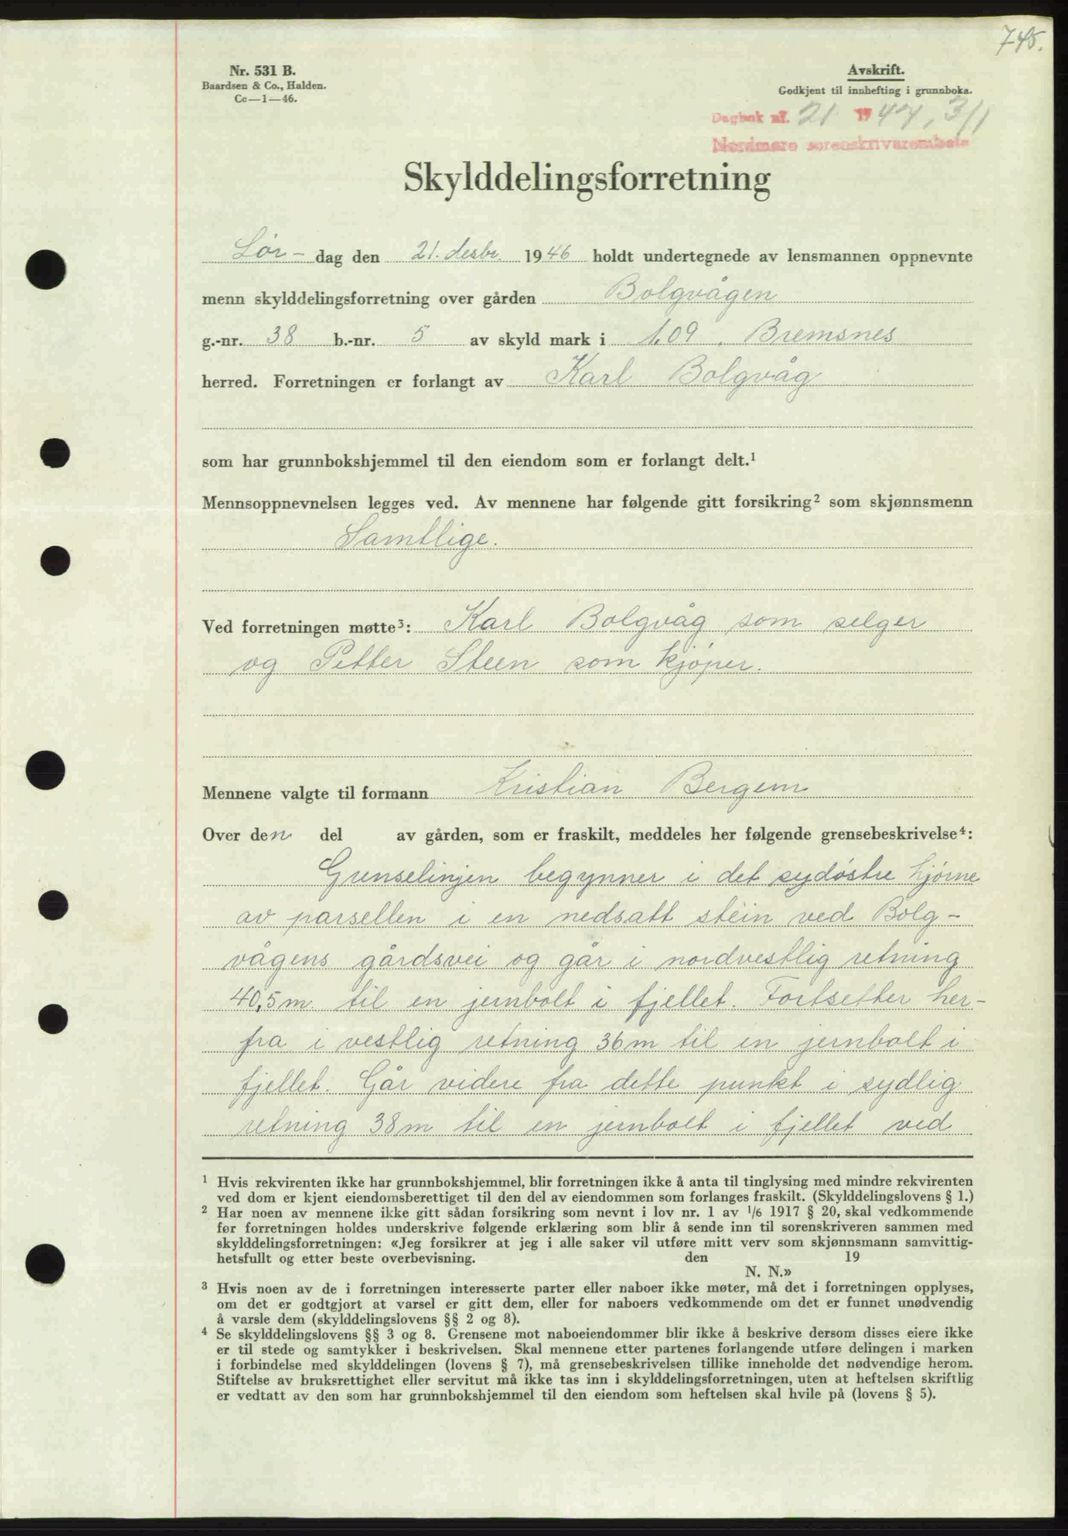 745.
Nr. 531 B.
Baardsen & Co., Halden.
Cc—1—46.
Avskrift.
Godkjent til innhefting i grunnboka.
Dagbok nr. 21 1947, 3/1
Nordmøre sorenskrivarembete
Skylddelingsforretning
Lør- dag den 21. desbr. 1946 holdt undertegnede av lensmannen oppnevnte
menn skylddelingsforretning over gården Bolgvågen
g.-nr. 38 b.-nr. 5 av skyld mark i 1.09. Bremsnes
herred. Forretningen er forlangt av Karl Bolgvåg
som har grunnbokshjemmel til den eiendom som er forlangt delt.¹
Mennsoppnevnelsen legges ved. Av mennene har følgende gitt forsikring² som skjønnsmenn
Samtlige.
Ved forretningen møtte³: Karl Bolgvåg som selger
og Petter Steen som kjøper.
Mennene valgte til formann Kristian Bergem
Over den del av gården, som er fraskilt, meddeles her følgende grensebeskrivelse⁴:
Grenselinjen begynner i det sydøstre hjørne
av parsellen i en nedsatt stein ved Bolg-
vågens gårdsvei og går i nordvestlig retning
40,5m til en jernbolt i fjellet. Fortsetter her-
fra i vestlig retning 36m til en jernbolt i
fjellet. Går videre fra dette punkt i sydlig
retning 38m til en jernbolt i fjellet ved
¹ Hvis rekvirenten ikke har grunnbokshjemmel, blir forretningen ikke å anta til tinglysing med mindre rekvirenten
ved dom er kjent eiendomsberettiget til den del av eiendommen som forlanges fraskilt. (Skylddelingslovens § 1.)
² Har noen av mennene ikke gitt sådan forsikring som nevnt i lov nr. 1 av 1/6 1917 § 20, skal vedkommende
før forretningen holdes underskrive følgende erklæring som blir å sende inn til sorenskriveren sammen med
skylddelingsforretningen: «Jeg forsikrer at jeg i alle saker vil utføre mitt verv som skjønnsmann samvittig-
hetsfullt og etter beste overbevisning. den 19
N. N.»
³ Hvis noen av de i forretningen interesserte parter eller naboer ikke møter, må det i forretningen opplyses,
om det er godtgjort at varsel er gitt dem, eller for naboers vedkommende om det er funnet unødvendig
å varsle dem (skylddelingslovens §§ 2 og 8).
⁴ Se skylddelingslovens §§ 3 og 8. Grensene mot naboeiendommer blir ikke å beskrive dersom disses eiere ikke
er til stede og samtykker i beskrivelsen. Skal mennene etter partenes forlangende utføre delingen i marken
i forbindelse med skylddelingen (lovens § 7), må grensebeskrivelsen tillike inneholde det nødvendige herom.
Stiftelse av bruksrettighet eller servitut må ikke tas inn i skylddelingsforretningen, uten at heftelsen skriftlig
er vedtatt av den som har grunnbokshjemmel til den eiendom som heftelsen skal hvile på (lovens § 5).